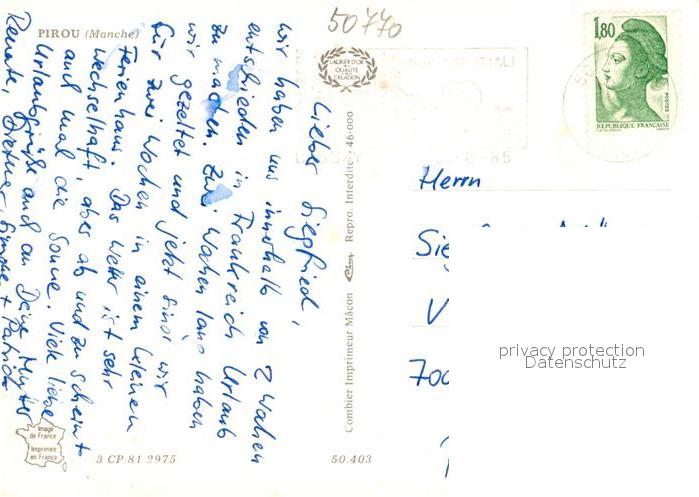 50770
PIROU (Manche)
LAURIER D'OR
QUALITÉ
CRÉATION
1,80
POSTES
REPUBLIQUE FRANÇAISE
-8-85
Lieber Siegfried,
wir haben uns innerhalb von 2 Wochen
entschieden in Frankreich Urlaub
zu machen. Zwei Wochen lang haben
wir gezeltet und jetzt sind wir
für zwei Wochen in einem kleinen
Ferienhaus. Das Wetter ist sehr
wechselhaft, aber ab und zu scheint
auch mal die Sonne. Viele liebe
Urlaubsgrüße auch an Deine Mutter
Renate, Simone + Patrick
Combier Imprimeur Mâcon Cim Repro. Interdite - 46-000
Herrn
Sieg
V
700
privacy protection
Datenschutz
Image
de France
Imprimée
en France
3 CP 81 2975
50.403